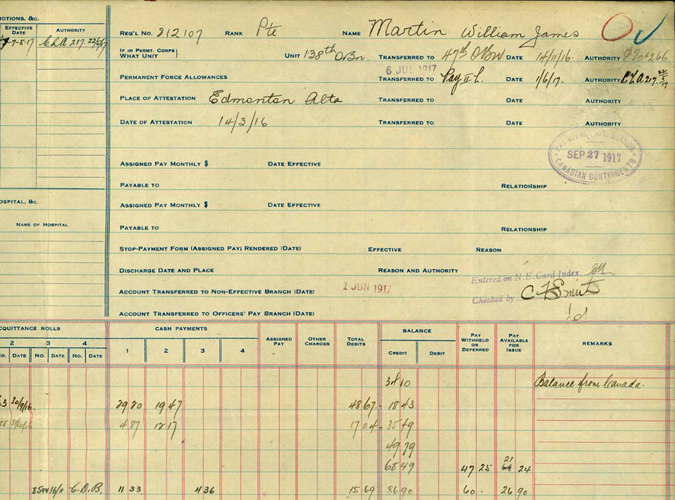 OTIONS, &C.
EFFECTIVE DATE AUTHORITY
7-5-17 C.L.A 217
REG'L NO. 212107 RANK Pte NAME Martin William James
IF IN PERMT. CORPS WHAT UNIT UNIT 138th O.Bn. TRANSFERRED TO 47th O/Bn DATE 14/11/16 AUTHORITY
6 JUL 1917
PERMANENT FORCE ALLOWANCES TRANSFERRED TO Pay II L. DATE 1/6/17. AUTHORITY CLA 217
PLACE OF ATTESTATION Edmonton Alta TRANSFERRED TO DATE AUTHORITY
DATE OF ATTESTATION 14/3/16 TRANSFERRED TO DATE AUTHORITY
SEP 27 1917
CANADIAN CONTINGENTS
ASSIGNED PAY MONTHLY $ DATE EFFECTIVE
PAYABLE TO RELATIONSHIP
OSPITAL, &C. ASSIGNED PAY MONTHLY $ DATE EFFECTIVE
NAME OF HOSPITAL PAYABLE TO RELATIONSHIP
STOP-PAYMENT FORM (ASSIGNED PAY) RENDERED (DATE) EFFECTIVE REASON
DISCHARGE DATE AND PLACE REASON AND AUTHORITY
Entered on N.E. Card Index
ACCOUNT TRANSFERRED TO NON-EFFECTIVE BRANCH (DATE) 1 JUN 1917 Checked by
ACCOUNT TRANSFERRED TO OFFICERS' PAY BRANCH (DATE)
CQUITTANCE ROLLS CASH PAYMENTS ASSIGNED PAY OTHER CHARGES TOTAL DEBITS BALANCE PAY WITHHELD OR DEFERRED PAY AVAILABLE FOR ISSUE REMARKS
2 3 4 1 2 3 4 CREDIT DEBIT
NO. DATE NO. DATE NO. DATE
34 10 Balance from Canada.
63 30/9/16 29 20 19 47 48 67 18 43
4 87 12 17 17 04 35 49
49 79
21
68 49 47 25 24
C.D.B. 11 33 4 36 15 69 86 90 60 - 26 90